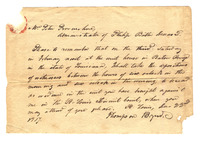 Mr Peter Dermenchant,
Administrator of Philip Butte Deceased
Please to remember that on the third saturday
in february next at the court house in Baton Rouge
in the state of Louisiana, I shall take the depositions
of witnesses between the hours of ten oclock in the
morning and six oclock in the evening, to be read
as evidence in the suit you have brought against
me in the St. Louis Circuit Court, when you
may attend if you please. St Louis, Nov 23rd
1817
Thompson Byrd.